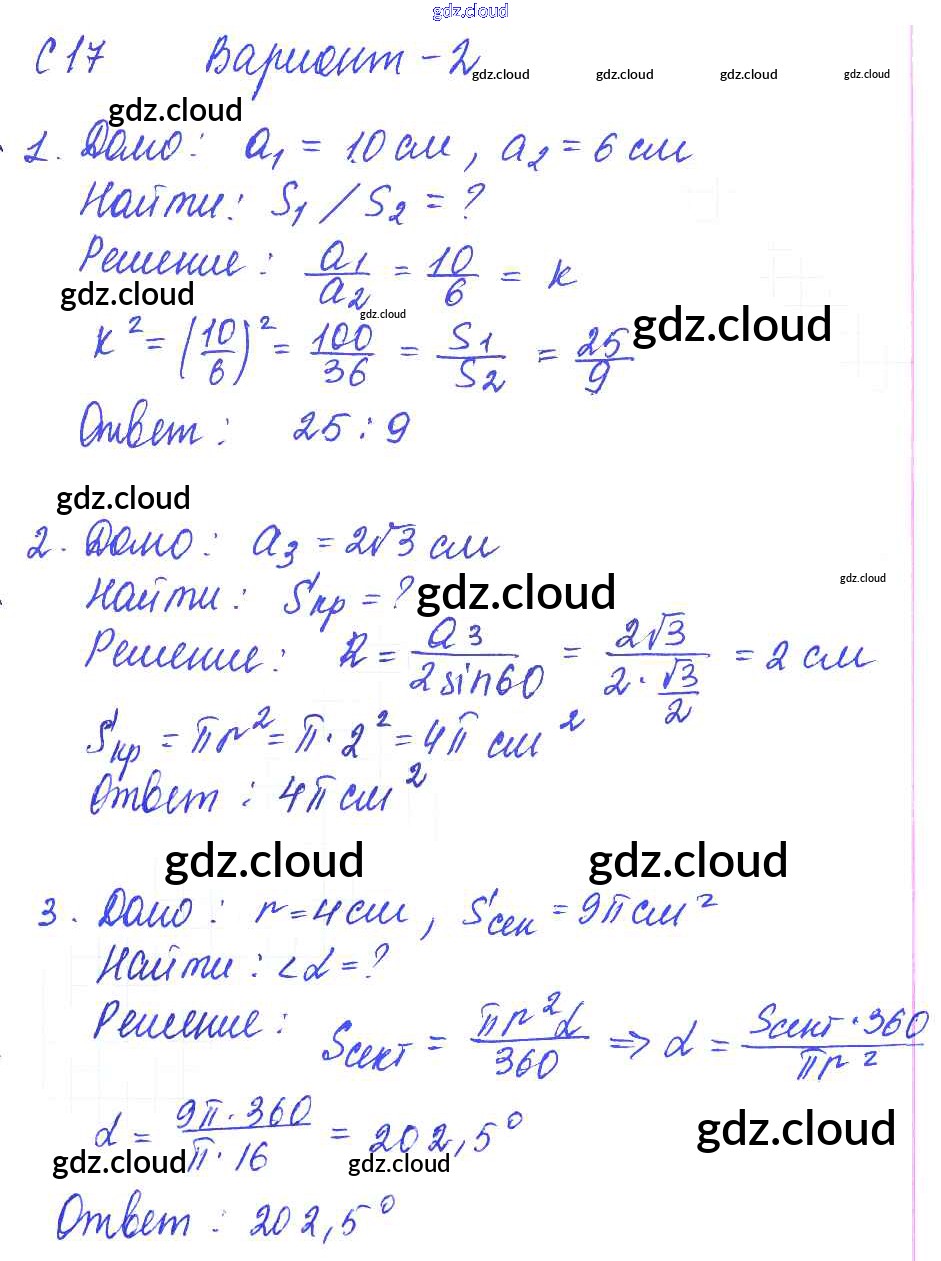 gdz.cloud
С 17 Вариант - 2
gdz.cloud gdz.cloud gdz.cloud gdz.cloud
gdz.cloud
1. Дано: a₁ = 10 см, a₂ = 6 см
Найти: S₁ / S₂ = ?
Решение: a₁/a₂ = 10/6 = k
gdz.cloud
gdz.cloud
gdz.cloud
k² = (10/6)² = 100/36 = S₁/S₂ = 25/9
Ответ: 25 : 9
gdz.cloud
2. Дано: a₃ = 2√3 см
gdz.cloud
Найти: Sкр = ?
gdz.cloud
Решение: R = a₃/(2 sin 60) = 2√3/(2 · √3/2) = 2 см
Sкр = πr² = π · 2² = 4π см²
Ответ: 4π см²
gdz.cloud gdz.cloud
3. Дано: r = 4 см, Sсек = 9π см²
Найти: <α = ?
Решение: Sсект = πr²α/360 => α = Sсект · 360/πr²
α = 9π · 360/π · 16 = 202,5°
gdz.cloud
gdz.cloud gdz.cloud
Ответ: 202,5°